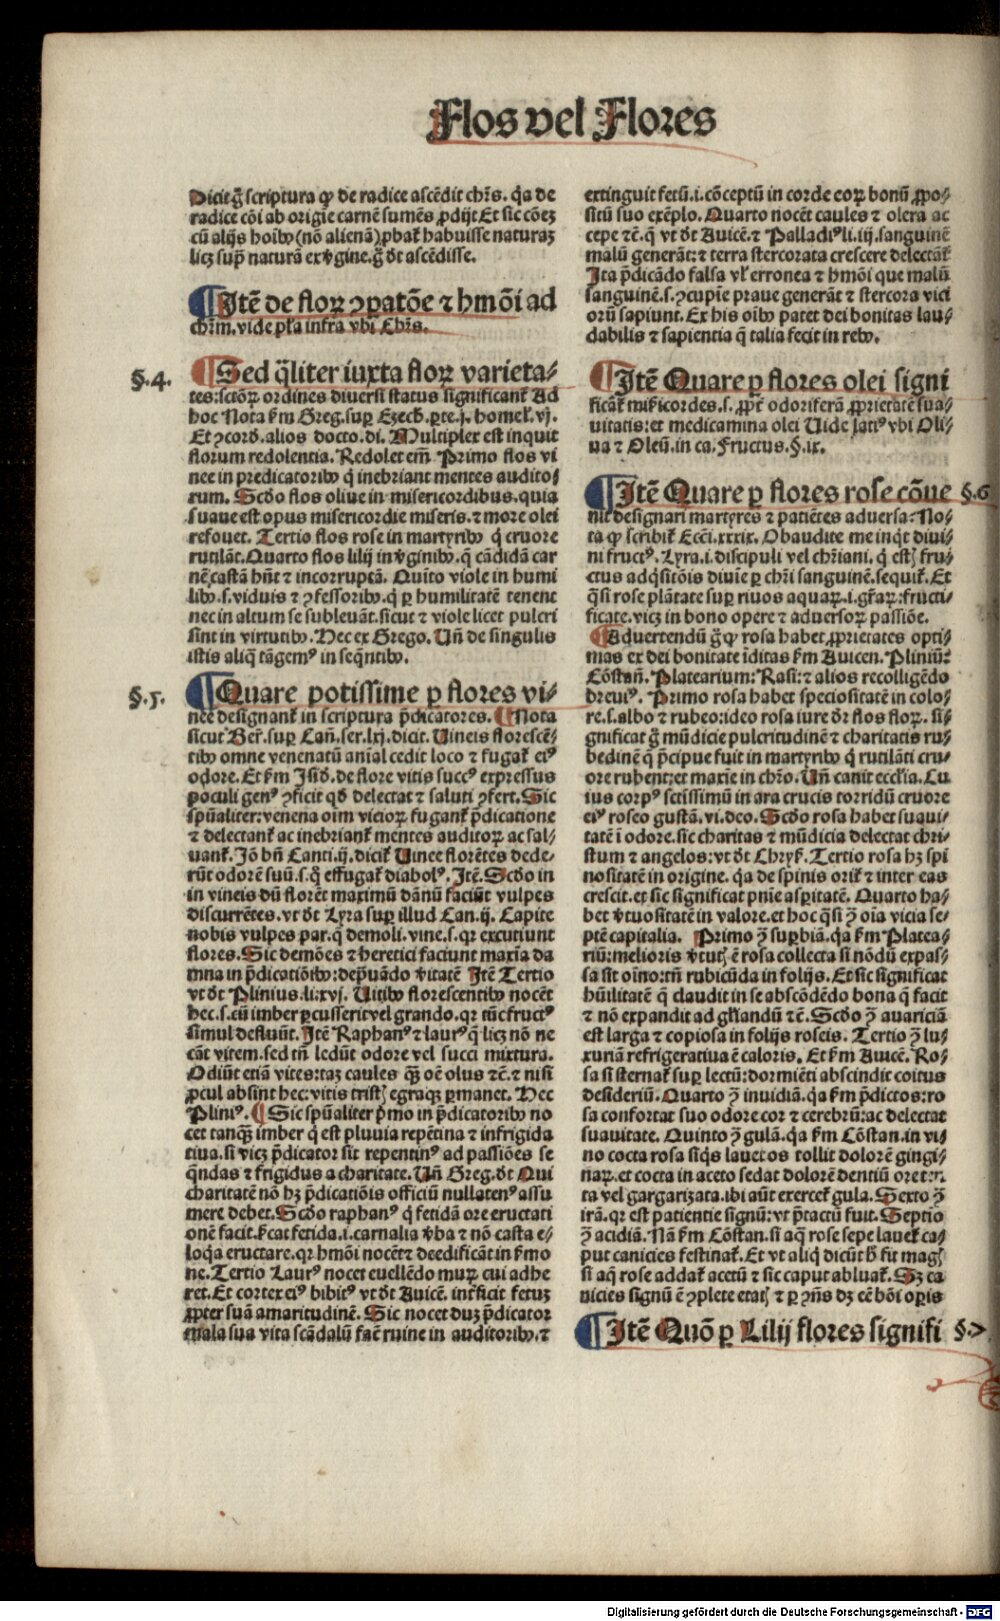 Flos vel Flores
Dicit g̃ scriptura ꝙ de radice ascēdit chr̄s. q̄a de
radice cōi ab origīe carnē sumēs ꝓdijt. Et sic cōez
cū alijs hoībꝰ (nō alienā) ꝓbat̄ habuisse naturaz
licz supͣ naturā ex ꝟgine. g̃ dr̄ ascēdisse.
¶ Itē de floꝝ ꝯpatōe ⁊ hmōi ad
chr̄m. vide pl̄a infra vbi Chr̄s.
§.4. ¶ Sed q̄liter iuxta floꝝ varieta⸗
tes: sctōꝝ ordines diuersi status significant̄ Ad
hoc Nota km̄ Greg. sup Ezech. ꝑte. j. homel. vj.
Et ꝯcord. alios docto. di. Multiplex est inquit
florum redolentia. Redolet em̄ Primo flos vi
nee in predicatoribꝰ q̇ inebriant mentes audito⸗
rum. Scd̄o flos oliue in misericordibus. quia
suaue est opus misericordie miseris. ⁊ more olei
refouet. Tertio flos rose in martyribꝰ q̇ cruore
rutilāt. Quarto flos lilij in ꝟginibꝰ. q̇ cādidā car
nē castā hn̄t ⁊ incorruptā. Quīto viole in humi
libꝰ. s. viduis ⁊ ꝯfessoribꝰ. q̇ ꝑ humilitatē tenent
nec in altum se subleuāt. sicut ⁊ viole licet pulcri
sint in virtutibꝰ. Hec ex Grego. Un̄ de singulis
istis aliq̄ tāgemꝰ in seq̄ntibꝰ.
§.5. ¶ Quare potissime ꝑ flores vi⸗
nee designant̄ in scriptura p̄dicatores. ¶ Nota
sicut Ber̄. sup Can̄. ser. lxj. dicit. Uineis florescē⸗
tibꝰ omne venenatū anīal cedit loco ⁊ fugat̄ eiꝰ
odore. Et km̄ Isid̄. de flore vitis succꝰ expressus
poculi genꝰ ꝯficit qd̄ delectat ⁊ saluti ꝯfert. Sic
spūaliter: venena oim vicioꝝ fugant̄ p̄dicatione
⁊ delectant̄ ac inebriant̄ mentes auditoꝝ ac sal⸗
uant̄. Jō bn̄ Canti. ij. dicit̄ Uinee florētes dede⸗
rūt odorē suū. s. q̇ effugat̄ diabolꝰ. Itē. Scd̄o in
in vineis dū florēt maximū dānū faciūt vulpes
discurrētes. vt dt̄ Lyra sup illud Can. ij. Capite
nobis vulpes par. q̄ demoli. vine. s. qr excutiunt
flores. Sic demōes ⁊ heretici faciunt maxīa da
mna in p̄dicatiōibꝰ: dep̄uādo ꝟitatē Itē Tertio
vt dt̄ Plinius. li. xvj. Uitibꝰ florescentibꝰ nocēt
hec. s. cū imber ꝑcusserit vel grando. qr tūc fructꝰ
simul defluūt. Itē Raphanꝰ ⁊ laurꝰ q̄ licz nō ne
cāt vitem. sed tn̄ ledūt odore vel succi mixtura.
Odiūt etiā vites: taz caules q̄ꝫ oē olus ⁊c̄. ⁊ nisi
ꝓcul absint hec: vitis tristꝭ egraqꝫ ꝑmanet. Hec
Pliniꝰ. ¶ Sic spūaliter pͥmo in p̄dicatoribꝰ no
cet tanqꝫ imber q̇ est pluuia repētina ⁊ infrigida
tiua. si vicz p̄dicator sit repentinꝰ ad passiōes se
q̄ndas ⁊ frigidus a charitate. Un̄ Greg. dt̄ Qui
charitatē nō hꝫ p̄dicatiōis officiū nullatenꝰ assu
mere debet. Scd̄o raphanꝰ q̇ fetidā ore eructati
onē facit. p̄cat fetida. i. carnalia ꝟba ⁊ nō casta e⸗
loq̄a eructare. qr hmōi nocēt ⁊ deedificāt in ꝼmo
ne. Tertio Laurꝰ nocet euellēdo muꝝ cui adhe
ret. Et cortex eiꝰ bibitꝰ vt dt̄ Auicē. inꝼficit fetuz
ꝓpter suā amaritudinē. Sic nocet duz p̄dicator
mala sua vita scādalū facit ruine in auditoribꝰ. ⁊
extinguit fetū. i. cōceptū in corde eoꝝ bonū ꝓpo⸗
sitū suo exēplo. Quarto nocēt caules ⁊ olera ac
cepe ⁊c̄. q̄ vt dt̄ Auicē. ⁊ Palladiꝰ li. iij. sanguinē
malū generāt: ⁊ terra stercorata crescere delectāt̄
Ita p̄dicādo falsa vl̓ erronea ⁊ hmōi que malū
sanguinē. s. ꝯcupīe praue generāt ⁊ stercora vici
orū sapiunt. Ex his oībꝰ patet dei bonitas lau⸗
dabilis ⁊ sapientia q̇ talia fecit in rebꝰ.
¶ Itē Quare ꝑ flores olei signi
ficāt̄ mīicordes. s. ꝓpt̄ odoriferā ꝓprietatē sua⸗
uitatis: et medicamina olei Uide latiꝰ vbi Oli⸗
ua ⁊ Oleū. in ca. Fructus. §. ix.
¶ Itē Quare ꝑ flores rose cōue §.6
nit designari martyres ⁊ patiētes aduersa: No⸗
ta ꝙ scribit̄ Ecci. xxxix. Obaudite me inq̇t diui⸗
ni fructꝰ. Lyra. i. discipuli vel chr̄iani. q̇ estꝭ fru⸗
ctus adq̇sitōis diuīe ꝑ chr̄i sanguinē. sequit̄. Et
q̄si rose plātate sup riuos aquaꝝ. i. gr̄aꝝ: fructi⸗
ficate. vicz in bono opere ⁊ aduersoꝝ passiōe.
¶ Aduertendū g̃ ꝙ rosa habet ꝓprietates opti⸗
mas ex dei bonitate īditas km̄ Auicen. Pliniū:
Cōstan̄. Platearium: Rasī: ⁊ alios recolligēdo
breuiꝰ. Primo rosa habet speciositatē in colo⸗
re. s. albo ⁊ rubeo: ideo rosa iure dr̄ flos floꝝ. si⸗
gnificat g̃ mūdicie pulcritudinē ⁊ charitatis ru⸗
bedinē q̄ p̄cipue fuit in martyribꝰ q̇ rutilāti cru⸗
ore rubent: et maxīe in chr̄o. Un̄ canit eccl̄ia. Cu
ius corpꝰ sctissimū in ara crucis torridū cruore
eiꝰ roseo gustā. vi. deo. Scd̄o rosa habet suaui⸗
tatē ī odore. sic charitas ⁊ mūdicia delectat chri⸗
stum ⁊ angelos: vt dt̄ Chryſ. Tertio rosa hꝫ spi
nositatē in origine. q̄a de spinis orit̄ ⁊ inter eas
crescit. et sic significat pnīe asꝑitatē. Quarto ha⸗
bet ꝟtuositatē in valore. et hoc q̄si ꝯ̄ oīa vicia se⸗
ptē capitalia. Primo ꝯ̄ suꝑbiā. q̄a km̄ Platea⸗
riū: melioris ꝟtutꝭ ē rosa collecta si nōdū expas⸗
sa sit oīno: tn̄ rubicūda in folijs. Et sic significat
hūilitatē q̄ claudit in se abscōdēdo bona q̄ facit
⁊ nō expandit ad gl̄iandū ⁊c̄. Scd̄o ꝯ̄ auariciā
est larga ⁊ copiosa in folijs roseis. Tertio ꝯ̄ lu⸗
xuriā refrigeratiua ē caloris. Et km̄ Auicē. Ro⸗
sa si sternat̄ sup lectū: dormiēti abscindit coitus
desideriū. Quarto ꝯ̄ inuidiā. q̄a km̄ p̄dictos: ro
sa confortat suo odore cor ⁊ cerebrū: ac delectat
suauitate. Quinto ꝯ̄ gulā. q̄a km̄ Cōstan. in vi⸗
no cocta rosa siq̇s lauet os tollit dolorē gingi⸗
naꝝ. et cocta in aceto sedat dolorē dentiū ore
ta vel gargarizata. ibi aūt exercet̄ gula. Sexto ꝯ̄
irā. qr est patientie signū: vt p̄tactū fuit. Septīo
ꝯ̄ acidiā. Nā km̄ Cōstan. si aq̄ rose sepe lauet̄ ca⸗
put canicies festinat̄. Et vt aliq̇ dicūt ħ fit magꝭ
si aq̄ rose addat̄ acetū ⁊ sic caput abluat̄. Sꝫ ca
nicies signū ē ꝯplete etatꝭ ⁊ ꝑ ꝯn̄s dꝫ cē bōi oꝑis
¶ Itē Quō ꝑ Lilij flores signifi §.7
Digitalisierung gefördert durch die Deutsche Forschungsgemeinschaft - DFG